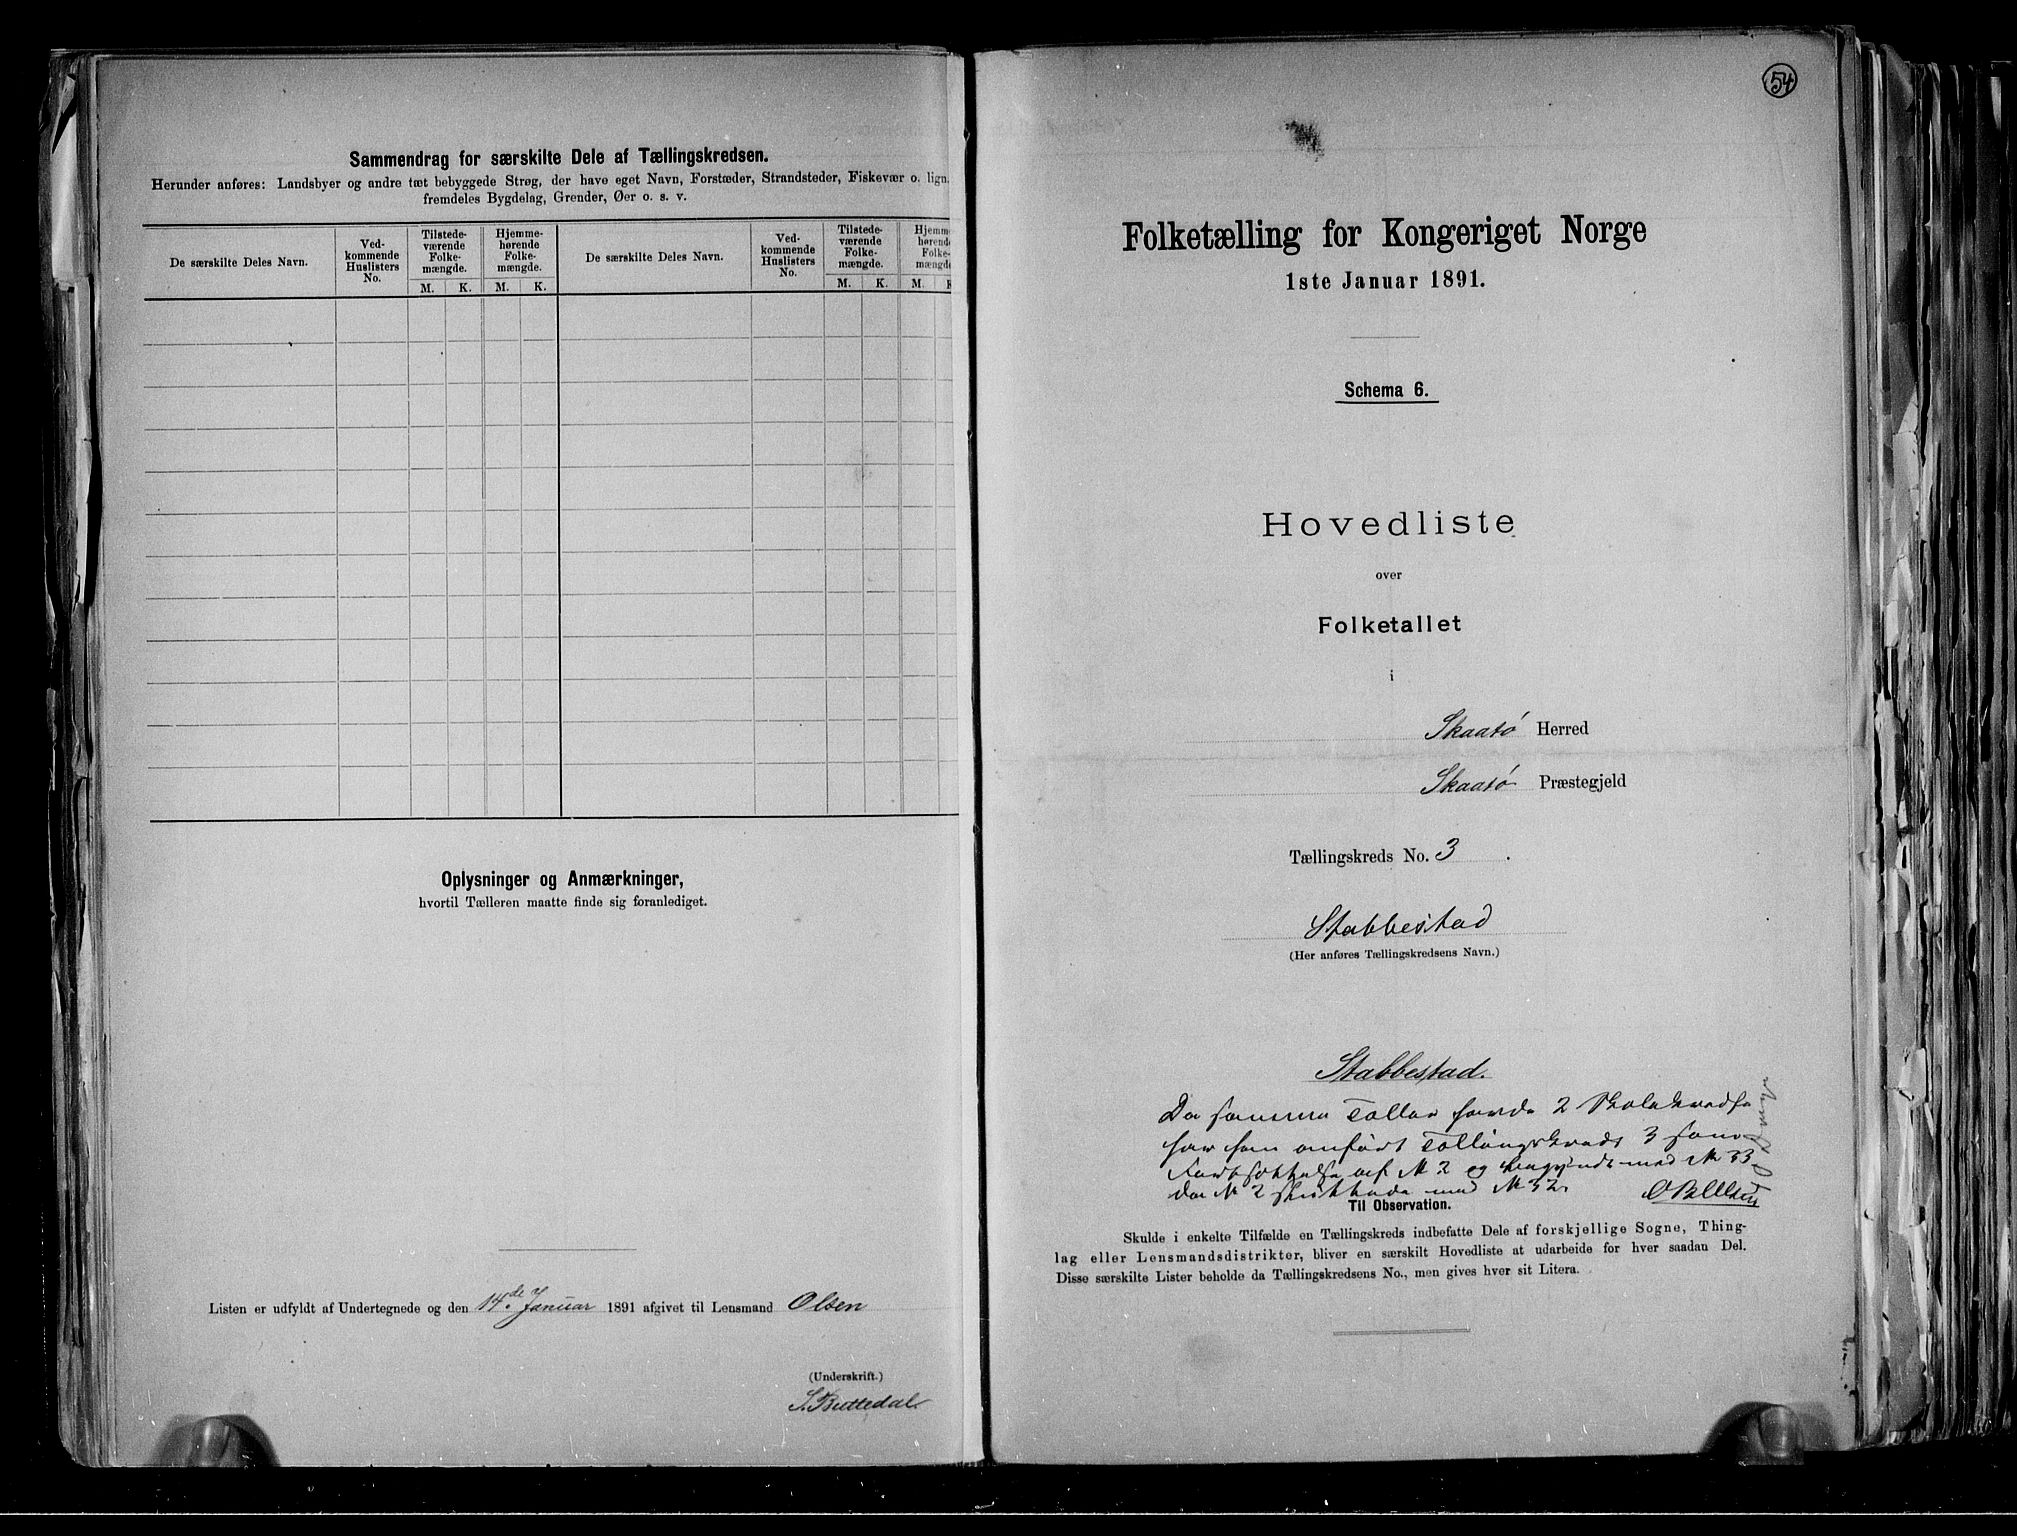 Sammendrag for særskilte Dele af Tællingskredsen.
Herunder anføres: Landsbyer og andre tæt bebyggede Strøg, der have eget Navn, Forstæder, Strandsteder, Fiskevær o. lign.
fremdeles Bygdelag, Grender, Øer o. s. v.
De særskilte Deles Navn.
Ved-
kommende
Huslisters
No.
Tilstede-
værende
Folke-
mængde.
Hjemme-
hørende
Folke-
mængde.
M. K. M. K.
De særskilte Deles Navn.
Ved-
kommende
Huslisters
No.
Tilstede-
værende
Folke-
mængde.
Hjemme-
hørende
Folke-
mængde
M. K. M. K
Oplysninger og Anmærkninger,
hvortil Tælleren maatte finde sig foranlediget.
Listen er udfyldt af Undertegnede og den 14de Januar 1891 afgivet til Lensmand Olsen
(Underskrift.)
S. Buttedal
54
Folketælling for Kongeriget Norge
1ste Januar 1891.
Schema 6.
Hovedliste
over
Folketallet
i
Skaatø Herred
Skaatø Præstegjeld
Tællingskreds No. 3.
Stabbestad
(Her anføres Tællingskredsens Navn.)
Stabbestad.
Da samme Tæller havde 2 Skolekredse
har han anført Tællingskreds 3 som
Fortsættelse af № 2 og begyndt med № 33
da № 2 sluttede med № 32.
Til Observation.
Skulde i enkelte Tilfælde en Tællingskreds indbefatte Dele af forskjellige Sogne, Thing-
lag eller Lensmandsdistrikter, bliver en særskilt Hovedliste at udarbeide for hver saadan Del.
Disse særskilte Lister beholde da Tællingskredsens No., men gives hver sit Litera.